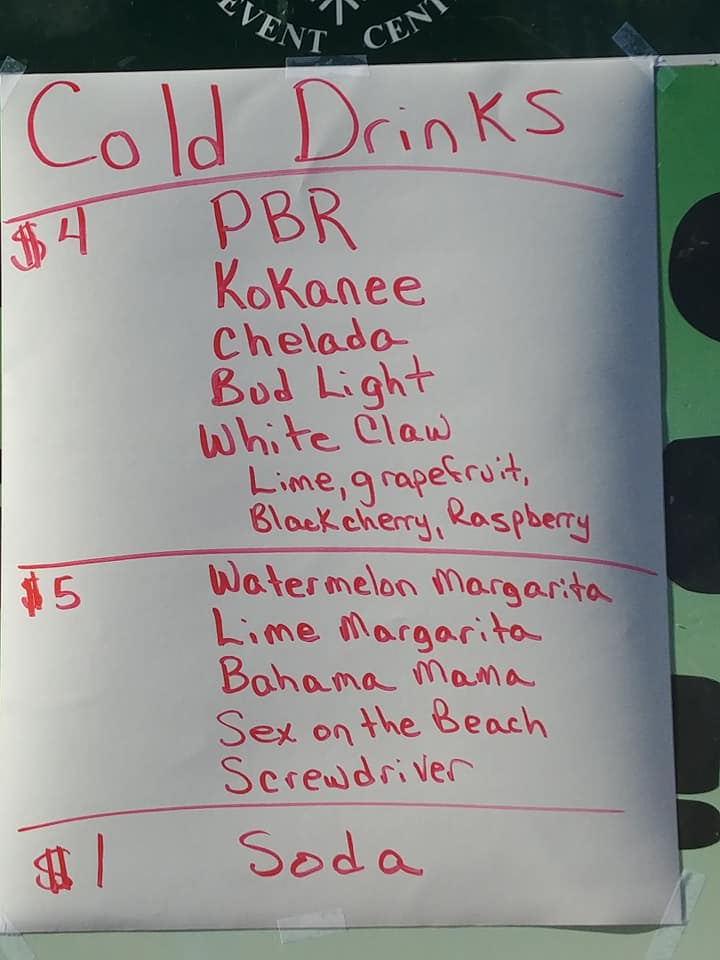 EVENT CENT
Cold Drinks
$4 PBR
Kokanee
Chelada
Bud Light
White Claw
Lime, grapefruit,
Black cherry, Raspberry
$5 Watermelon Margarita
Lime Margarita
Bahama Mama
Sex on the Beach
Screwdriver
$1 Soda